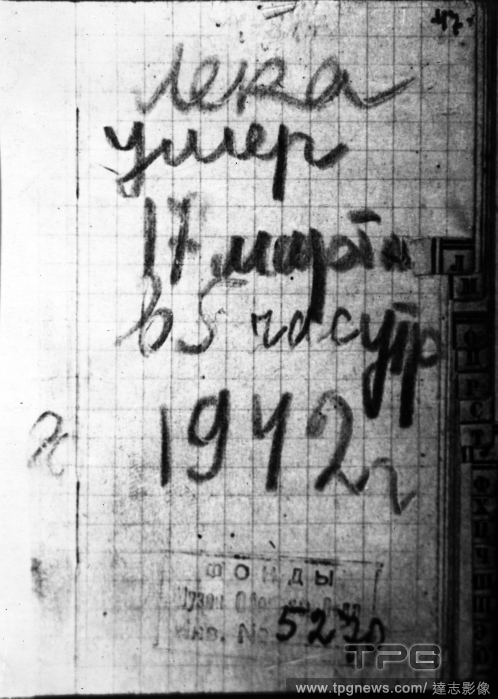 47.
Лека
умер
17 марта
в 5 час утр
1942 г
Л
М
ФОНДЫ
Музея
Инв. № 5230
TPG
www.tpgnews.com/ 達志影像